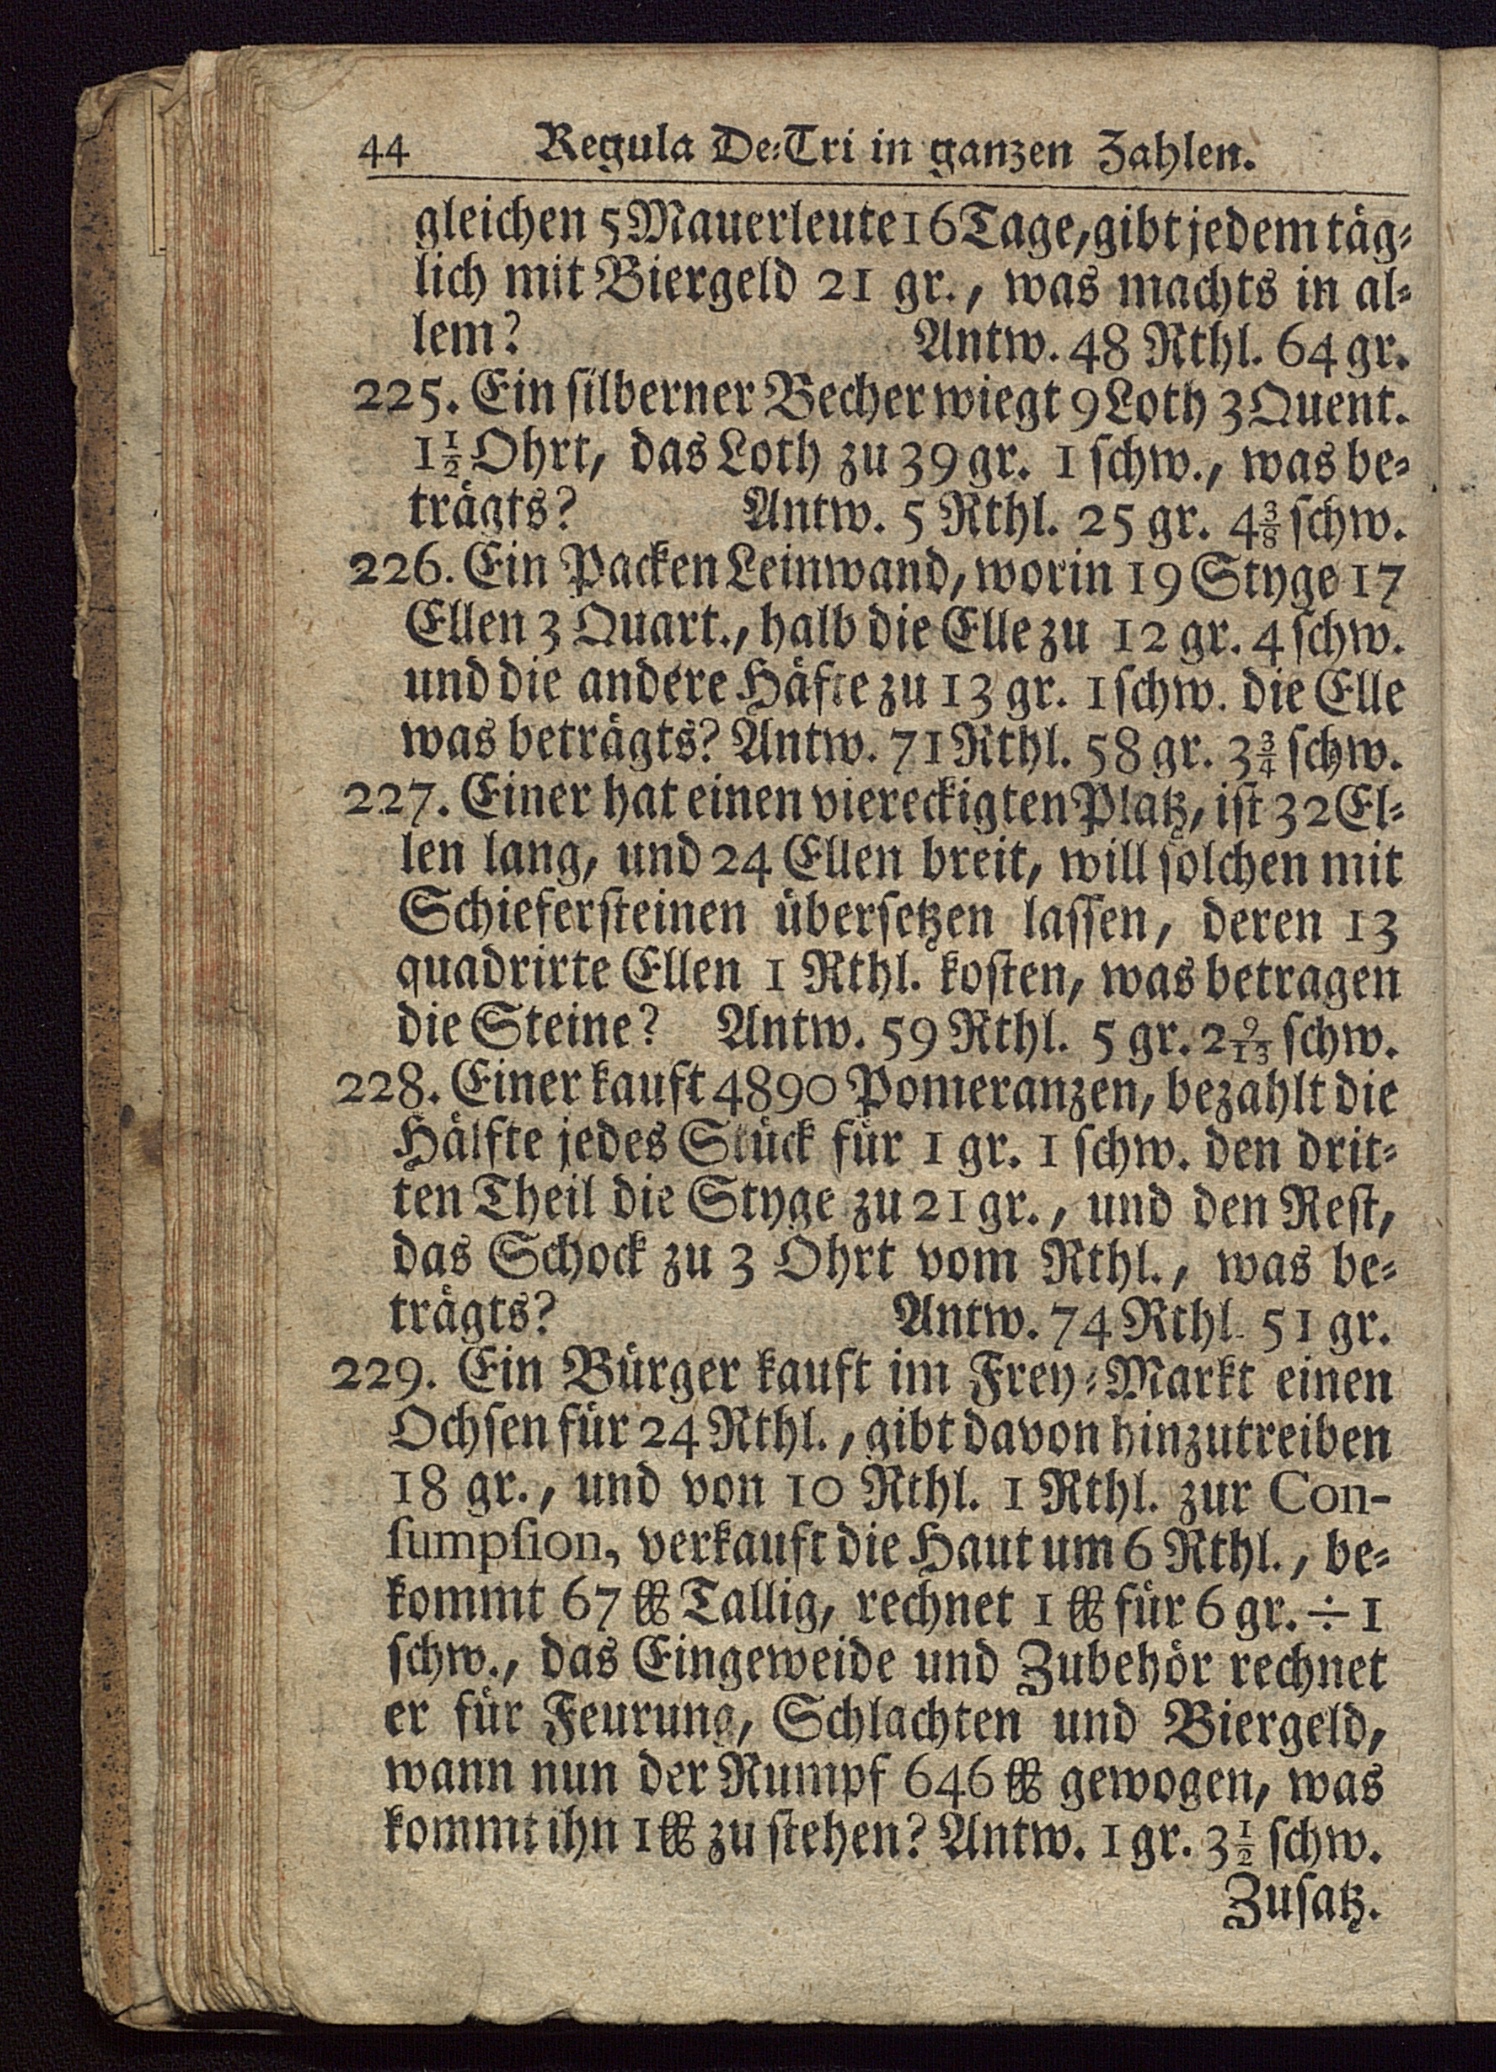 44 Regula De-Tri in ganzen Zahlen.
gleichen 5 Mauerleute 16 Tage, gibt jedem täg-
lich mit Biergeld 21 gr., was machts in al-
lem? Antw. 48 Rthl. 64 gr.
225. Ein silberner Becher wiegt 9 Loth 3 Quent.
1½ Ohrt, das Loth zu 39 gr. 1 schw., was be-
trägts? Antw. 5 Rthl. 25 gr. 4⅜ schw.
226. Ein Packen Leinwand, worin 19 Styge 17
Ellen 3 Quart., halb die Elle zu 12 gr. 4 schw.
und die andere Häfte zu 13 gr. 1 schw. die Elle
was beträgts? Antw. 71 Rthl. 58 gr. 3¾ schw.
227. Einer hat einen viereckigten Platz, ist 32 El-
len lang, und 24 Ellen breit, will solchen mit
Schiefersteinen übersetzen lassen, deren 13
quadrirte Ellen 1 Rthl. kosten, was betragen
die Steine? Antw. 59 Rthl. 5 gr. 2 9/13 schw.
228. Einer kauft 4890 Pomeranzen, bezahlt die
Hälfte jedes Stück für 1 gr. 1 schw. den drit-
ten Theil die Styge zu 21 gr., und den Rest,
das Schock zu 3 Ohrt vom Rthl., was be-
trägts? Antw. 74 Rthl. 51 gr.
229. Ein Bürger kauft im Frey-Markt einen
Ochsen für 24 Rthl., gibt davon hinzutreiben
18 gr., und von 10 Rthl. 1 Rthl. zur Con-
sumpsion, verkauft die Haut um 6 Rthl., be-
kommt 67 ℔ Tallig, rechnet 1 ℔ für 6 gr. ÷ 1
schw., das Eingeweide und Zubehör rechnet
er für Feurung, Schlachten und Biergeld,
wann nun der Rumpf 646 ℔ gewogen, was
kommt ihn 1 ℔ zu stehen? Antw. 1 gr. 3½ schw.
Zusatz.